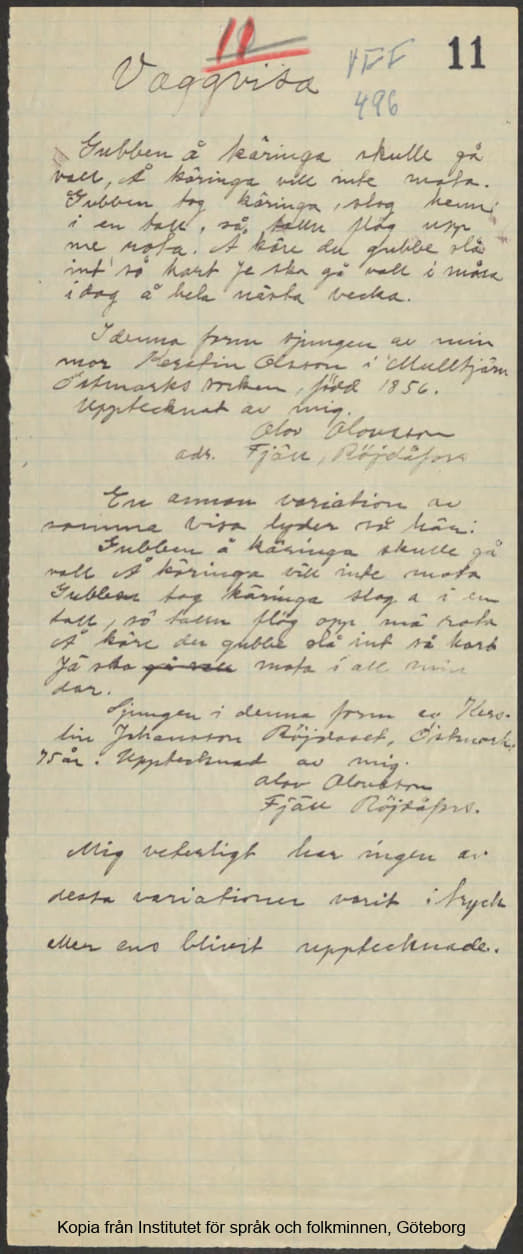 11
11
VFF
496
Vaggvisa
Gubben å käringa skulle gå
vall, Å käringa vill inte mota.
Gubben tog käringa, slog henne
i en tall, så tallen flög upp
me rota. Å käre du gubbe slå
int' så hart Je ska gå vall i måra
idag å hela nästa vecka.
I denna form sjungen av min
mor Kerstin Olsson i Mulltjärn
Östmarks socken, född 1856.
Upptecknat av mig.
Olov Olovsson
adr. Fjäll, Röjdåfors
En annan variation av
samma visa lyder så här:
Gubben å käringa skulle gå
vall Å käringa vill inte mota
Gubben tog käringa slog a i en
tall, så tallen flög opp mä rota
Å käre du gubbe slå int så hart
Jä ska gå vall mota i all min
dar.
Sjungen i denna form av Kers-
tin Johansson Röjdoset, Östmark.
75 år. Upptecknad av mig.
Olov Olovsson
Fjäll Röjdåfors.
Mig veterligt har ingen av
dessa variationer varit i tryck
eller ens blivit upptecknade.
Kopia från Institutet för språk och folkminnen, Göteborg